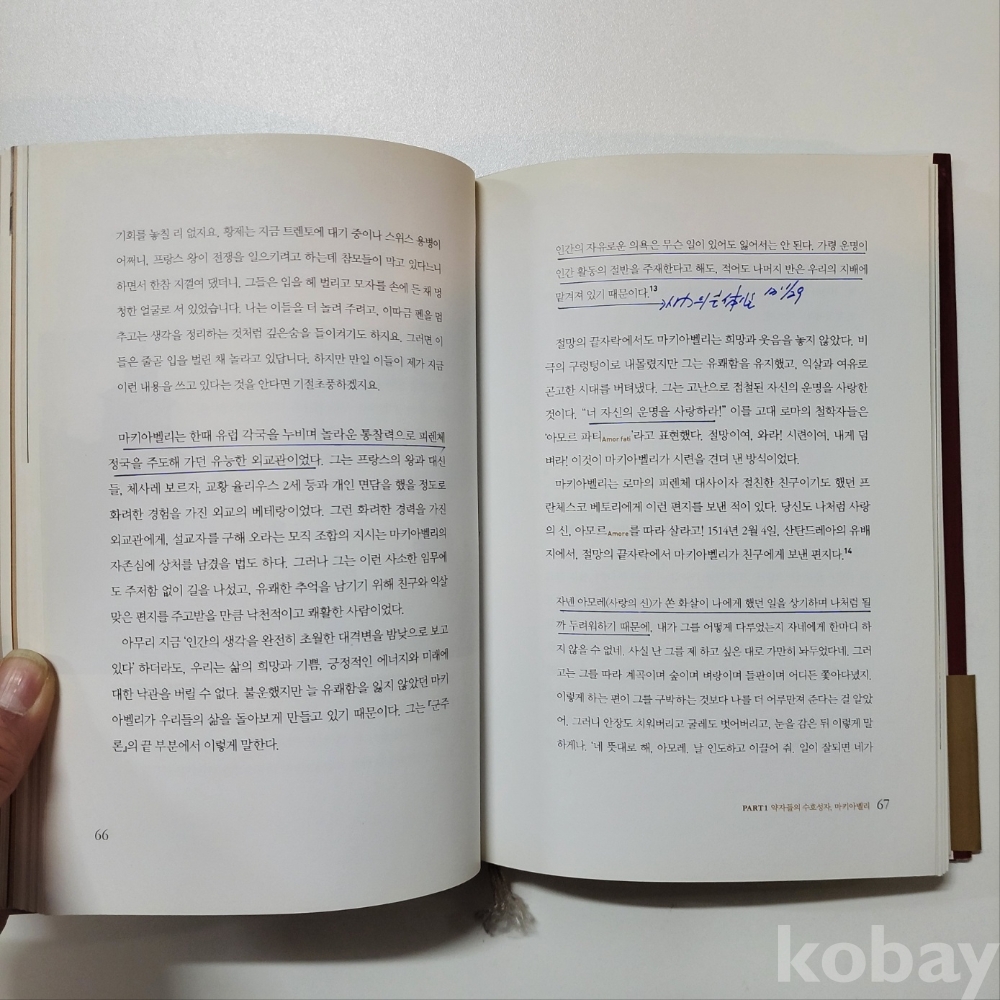 기회를 놓칠 리 없지요. 황제는 지금 트렌토에 대기 중이나 스위스 용병이
어쩌니, 프랑스 왕이 전쟁을 일으키려고 하는데 참모들이 막고 있다느니
하면서 한참 지껄여 댔더니, 그들은 입을 헤 벌리고 모자를 손에 든 채 멍
청한 얼굴로 서 있었습니다. 나는 이들을 더 놀려 주려고, 이따금 펜을 멈
추고는 생각을 정리하는 것처럼 깊은숨을 들이켜기도 하지요. 그러면 이
들은 줄곧 입을 벌린 채 놀라고 있답니다. 하지만 만일 이들이 제가 지금
이런 내용을 쓰고 있다는 것을 안다면 기절초풍하겠지요.
마키아벨리는 한때 유럽 각국을 누비며 놀라운 통찰력으로 피렌체
정국을 주도해 가던 유능한 외교관이었다. 그는 프랑스의 왕과 대신
들, 체사레 보르자, 교황 율리우스 2세 등과 개인 면담을 했을 정도로
화려한 경험을 가진 외교의 베테랑이었다. 그런 화려한 경력을 가진
외교관에게, 설교자를 구해 오라는 모직 조합의 지시는 마키아벨리의
자존심에 상처를 남겼을 법도 하다. 그러나 그는 이런 사소한 임무에
도 주저함 없이 길을 나섰고, 유쾌한 추억을 남기기 위해 친구와 익살
맞은 편지를 주고받을 만큼 낙천적이고 쾌활한 사람이었다.
아무리 지금 '인간의 생각을 완전히 초월한 대격변을 밤낮으로 보고
있다' 하더라도, 우리는 삶의 희망과 기쁨, 긍정적인 에너지와 미래에
대한 낙관을 버릴 수 없다. 불운했지만 늘 유쾌함을 잃지 않았던 마키
아벨리가 우리들의 삶을 돌아보게 만들고 있기 때문이다. 그는 『군주
론』의 끝 부분에서 이렇게 말한다.
66
인간의 자유로운 의욕은 무슨 일이 있어도 잃어서는 안 된다. 가령 운명이
인간 활동의 절반을 주재한다고 해도, 적어도 나머지 반은 우리의 지배에
맡겨져 있기 때문이다.13
절망의 끝자락에서도 마키아벨리는 희망과 웃음을 놓지 않았다. 비
극의 구렁텅이로 내몰렸지만 그는 유쾌함을 유지했고, 익살과 여유로
곤고한 시대를 버텨냈다. 그는 고난으로 점철된 자신의 운명을 사랑한
것이다. "너 자신의 운명을 사랑하라!" 이를 고대 로마의 철학자들은
'아모르 파티Amor fati'라고 표현했다. 절망이여, 와라! 시련이여, 내게 덤
벼라! 이것이 마키아벨리가 시련을 견뎌 낸 방식이었다.
마키아벨리는 로마의 피렌체 대사이자 절친한 친구이기도 했던 프
란체스코 베토리에게 이런 편지를 보낸 적이 있다. 당신도 나처럼 사랑
의 신, 아모르Amore를 따라 살라고! 1514년 2월 4일, 산탄드레아의 유배
지에서, 절망의 끝자락에서 마키아벨리가 친구에게 보낸 편지다.14
자넨 아모레(사랑의 신)가 쏜 화살이 나에게 했던 일을 상기하며 나처럼 될
까 두려워하기 때문에, 내가 그를 어떻게 다루었는지 자네에게 한마디 하
지 않을 수 없네. 사실 난 그를 제 하고 싶은 대로 가만히 놔두었다네, 그러
고는 그를 따라 계곡이며 숲이며 벼랑이며 들판이며 어디든 쫓아다녔지.
이렇게 하는 편이 그를 구박하는 것보다 나를 더 어루만져 준다는 걸 알았
어. 그러니 안장도 치워버리고 굴레도 벗어버리고, 눈을 감은 뒤 이렇게 말
하게나. '네 뜻대로 해, 아모레, 날 인도하고 이끌어 줘. 일이 잘되면 네가
PART 1 약자들의 수호성자, 마키아벨리 67
kobay